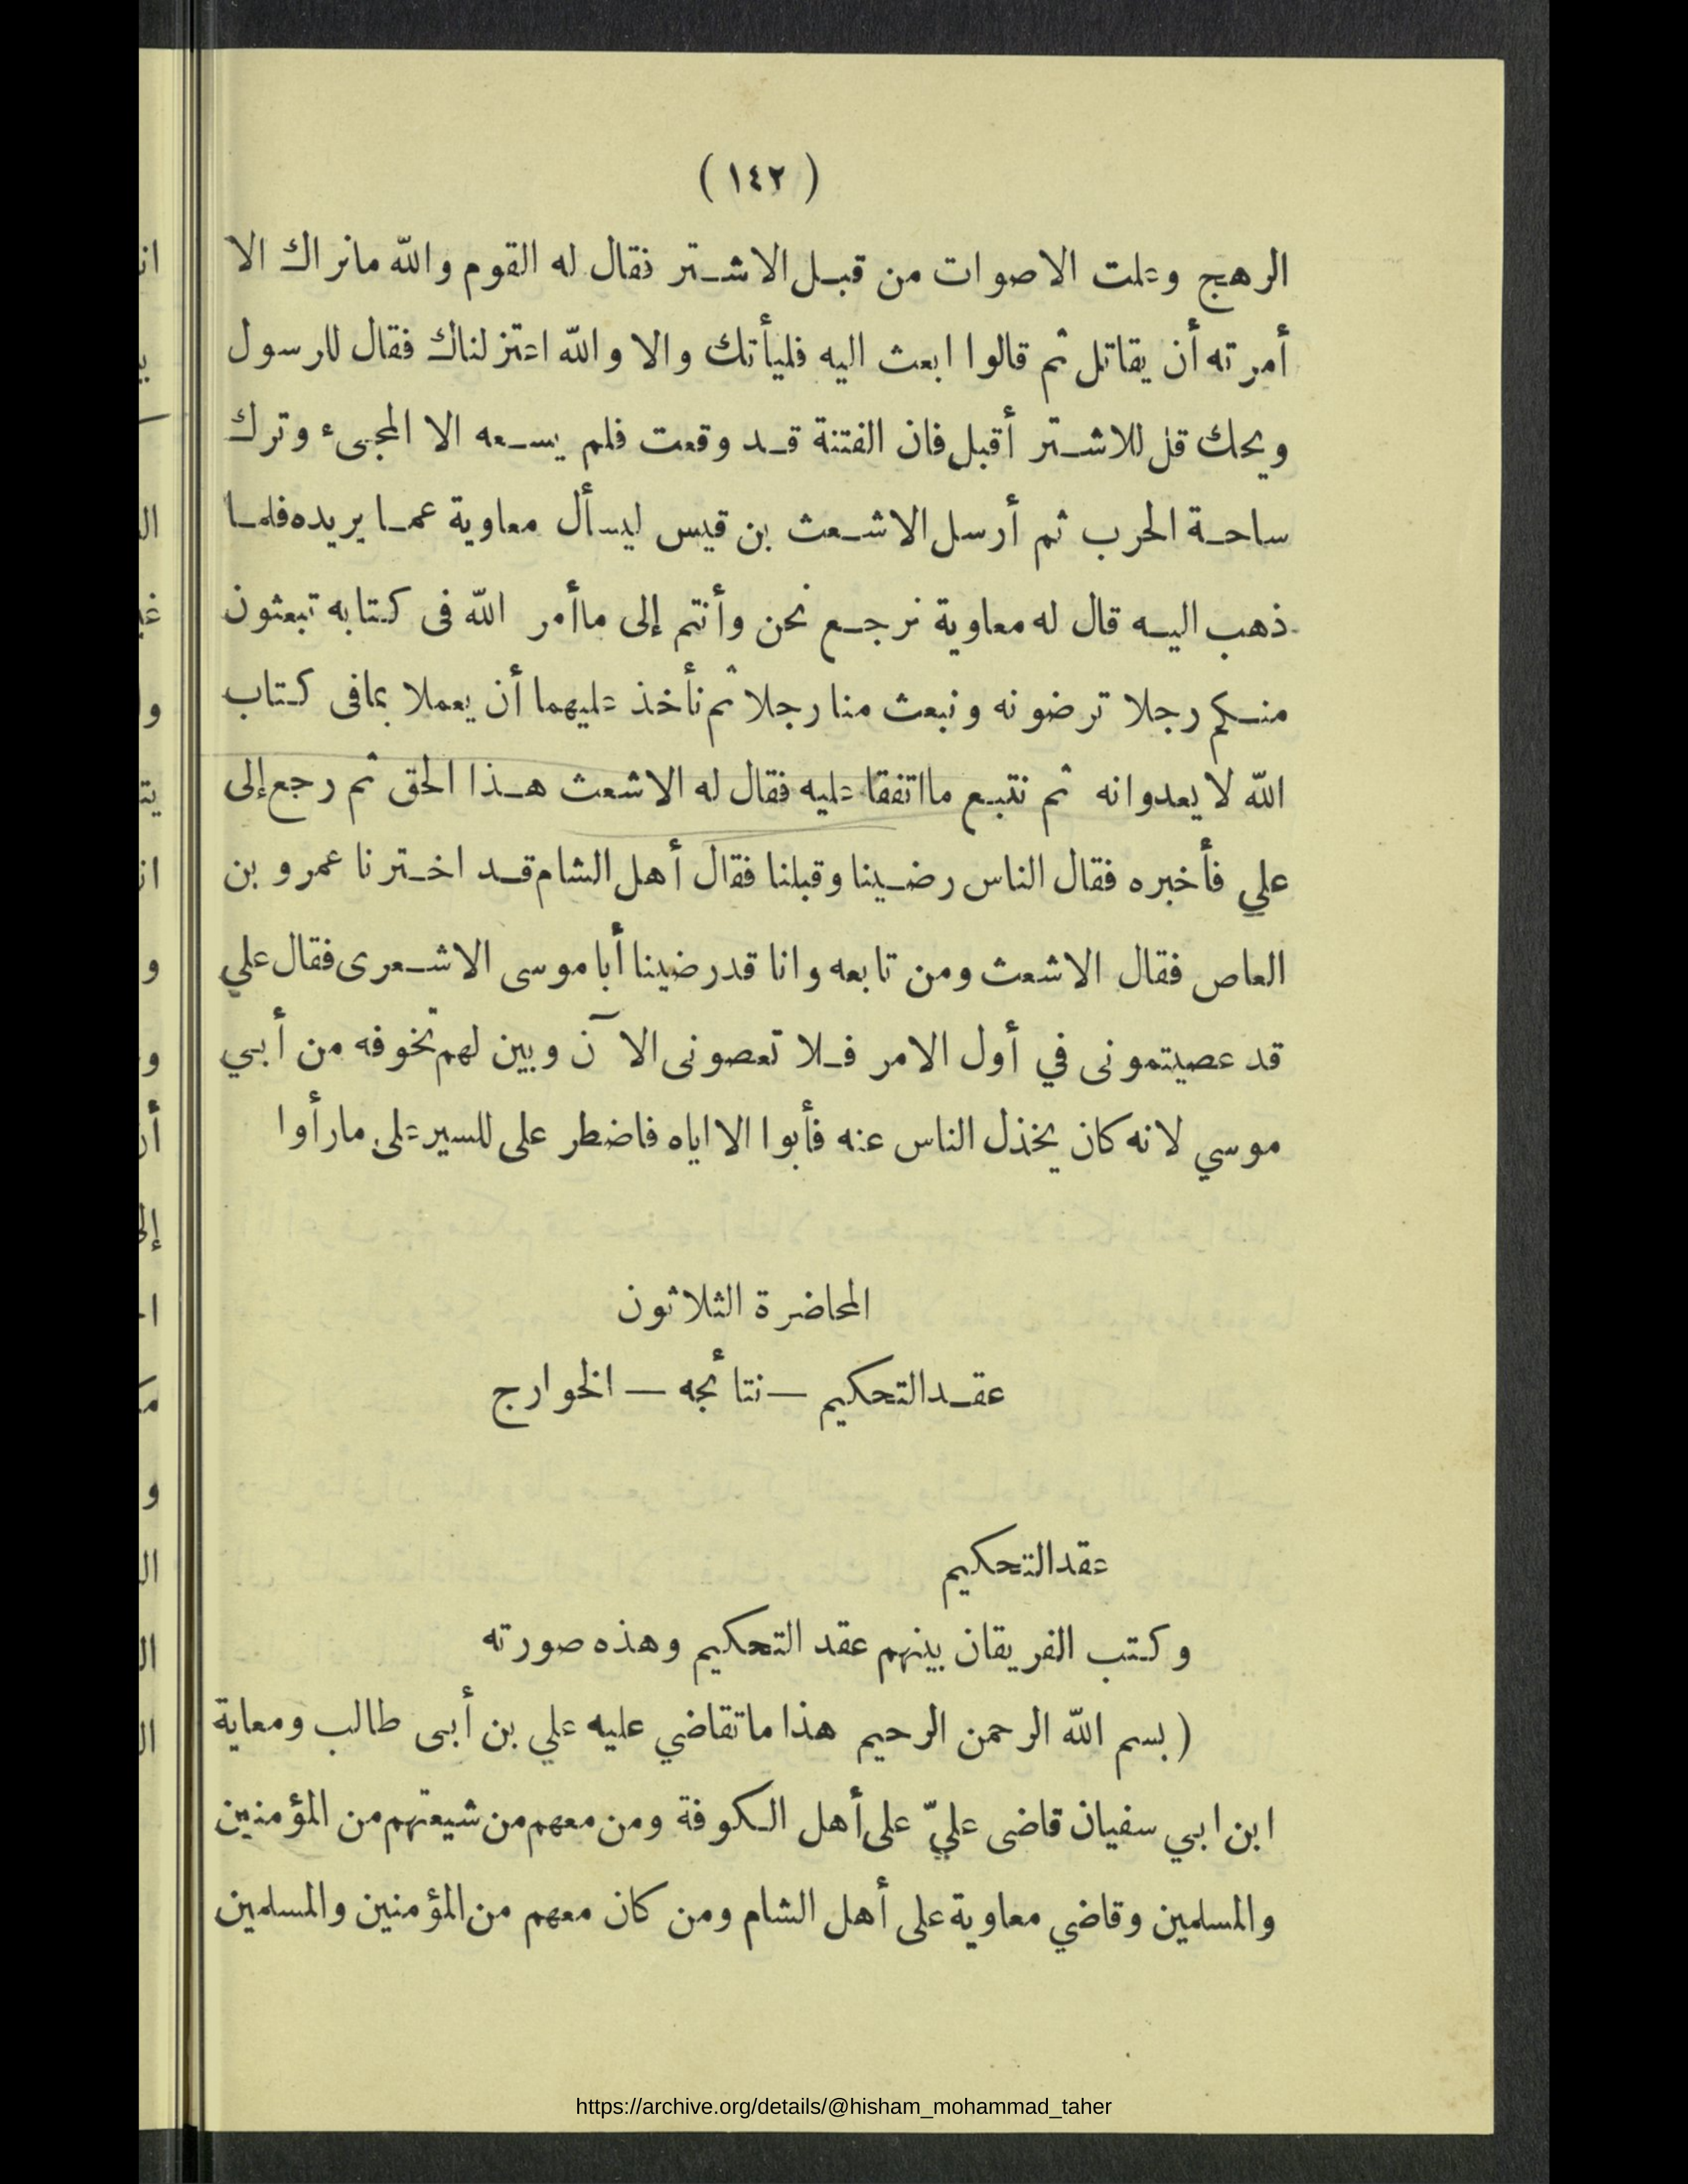 ( ١٤٢ )
الرهج وعلت الاصوات من قبل الاشتر فقال له القوم والله مانراك الا
أمرته أن يقاتل ثم قالوا ابعث اليه فليأتك والا والله اعتزلناك فقال للرسول
ويحك قل للاشتر أقبل فان الفتنة قد وقعت فلم يسعه الا المجىء وترك
ساحة الحرب ثم أرسل الاشعث بن قيس ليسأل معاوية عما يريده فلما
ذهب اليه قال له معاوية نرجع نحن وأنتم إلى ماأمر الله فى كتابه تبعثون
منكم رجلا ترضونه ونبعث منا رجلا ثم نأخذ عليهما أن يعملا بمافى كتاب
الله لا يعدوانه ثم نتبع مااتفقا عليه فقال له الاشعث هذا الحق ثم رجع إلى
علي فأخبره فقال الناس رضينا وقبلنا فقال أهل الشام قد اخترنا عمرو بن
العاص فقال الاشعث ومن تابعه وانا قد رضينا أبا موسى الاشعرى فقال علي
قد عصيتمونى في أول الامر فلا تعصونى الآن وبين لهم تخوفه من أبي
موسي لانه كان يخذل الناس عنه فأبوا الا اياه فاضطر على للسير على مارأوا
المحاضرة الثلاثون
عقد التحكيم — نتائجه — الخوارج
عقد التحكيم
وكتب الفريقان بينهم عقد التحكيم وهذه صورته
( بسم الله الرحمن الرحيم هذا ماتقاضي عليه علي بن أبى طالب ومعاية
ابن ابي سفيان قاضى عليّ على أهل الكوفة ومن معهم من شيعتهم من المؤمنين
والمسلمين وقاضي معاوية على أهل الشام ومن كان معهم من المؤمنين والمسلمين
https://archive.org/details/@hisham_mohammad_taher